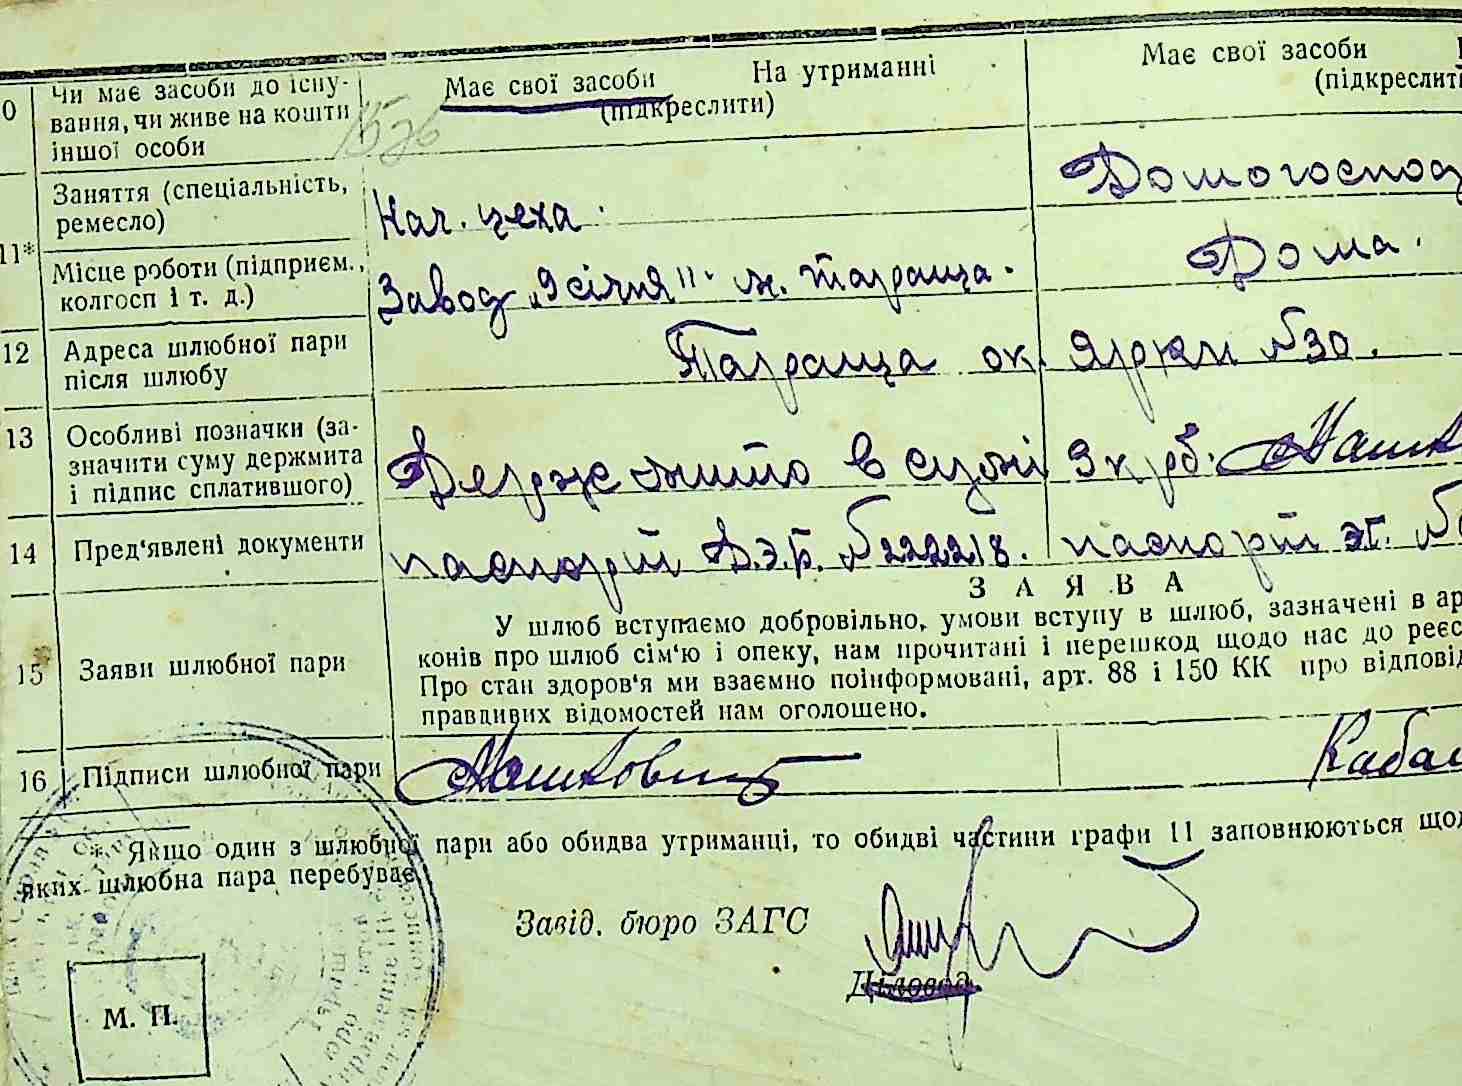 0 Чи має засоби до існу-
вання, чи живе на кошти
іншої особи
Має свої засоби На утриманні
(підкреслити)
Має свої засоби
(підкреслити
11* Заняття (спеціальність,
ремесло)
Нач. цеха.
Домогоспод
Місце роботи (підприєм.,
колгосп і т. д.)
Завод „9 січня" м. Тараща.
Дома.
12 Адреса шлюбної пари
після шлюбу
Тараща ок. Ярки №30.
13 Особливі позначки (за-
значити суму держмита
і підпис сплатившого)
Держ мито в сумі 3 крб.
14 Пред'явлені документи
паспорт №222218. паспорт №
15 Заяви шлюбної пари
ЗАЯВА
У шлюб вступаємо добровільно, умови вступу в шлюб, зазначені в ар
конів про шлюб сім'ю і опеку, нам прочитані і перешкод щодо нас до реєс
Про стан здоров'я ми взаємно поінформовані, арт. 88 і 150 КК про відповід
правдивих відомостей нам оголошено.
16 Підписи шлюбної пари
* Якщо один з шлюбної пари або обидва утриманці, то обидві частини графи 11 заповнюються щод
яких шлюбна пара перебуває
Завід. бюро ЗАГС
Діловод
М. П.